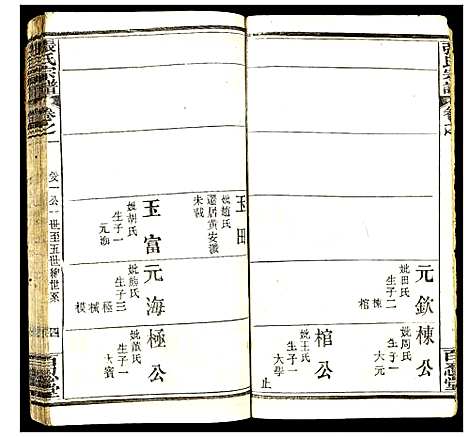 張氏宗譜
卷之
元欽
妣田氏
生子二
棟
棺
棟公
妣周氏
生子一
大元
棺公
妣王氏
生子一
大學
止
百忍堂
玉田
妣趙氏
遷居黃安
未載
玉富
妣胡氏
生子一
元海
元海
妣熊氏
生子三
極
械
模
極公
妣戴氏
生子一
大賓
張氏宗譜
卷之一
一公一世至五世繪世系
四
百忍堂